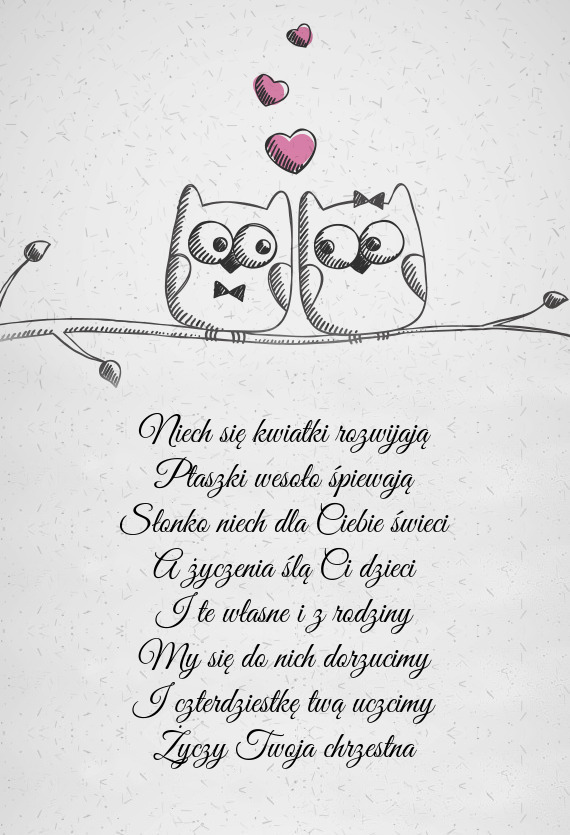 Niech się kwiatki rozwijają
Ptaszki wesoło śpiewają
Słonko niech dla Ciebie świeci
A życzenia ślą Ci dzieci
I te własne i z rodziny
My się do nich dorzucimy
I czterdziestkę twą uczcimy
Życzy Twoja chrzestna